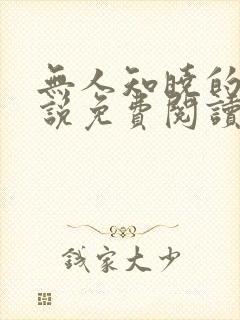 無人知曉的
說免費閱讀
錢家大少